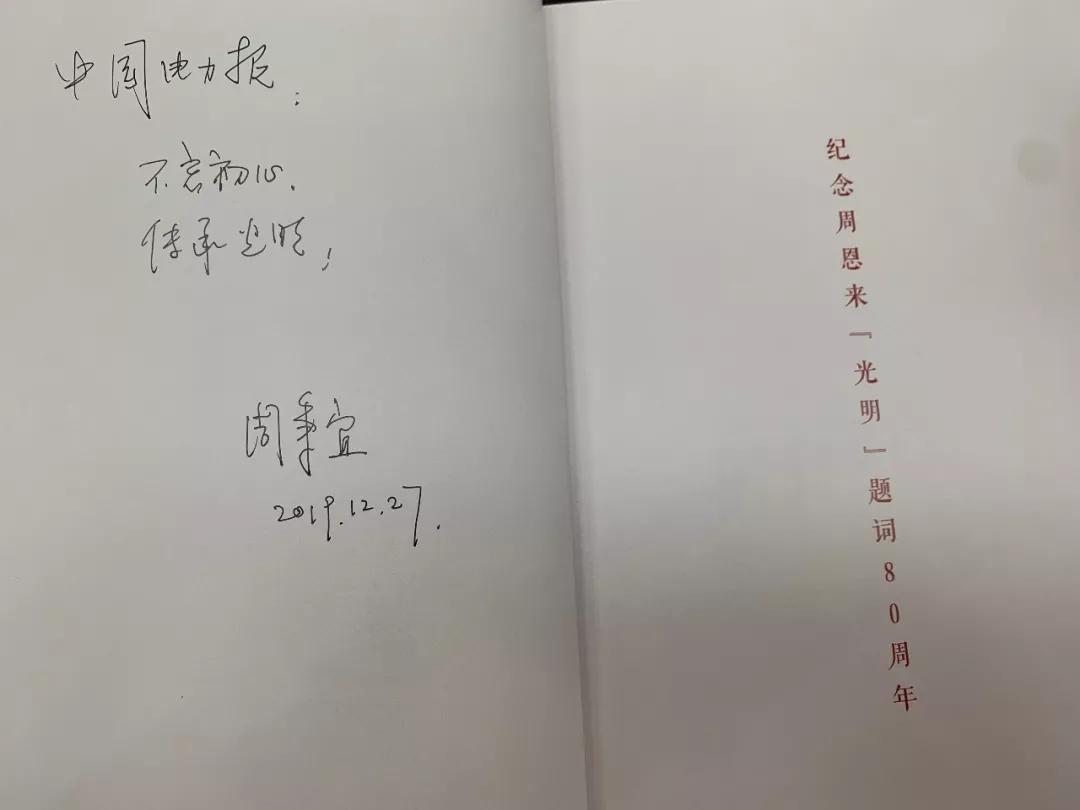 中国电力报：
不忘初心．
传承光明；
周秉宜
2019.12.27.
纪念周恩来『光明』题词80周年